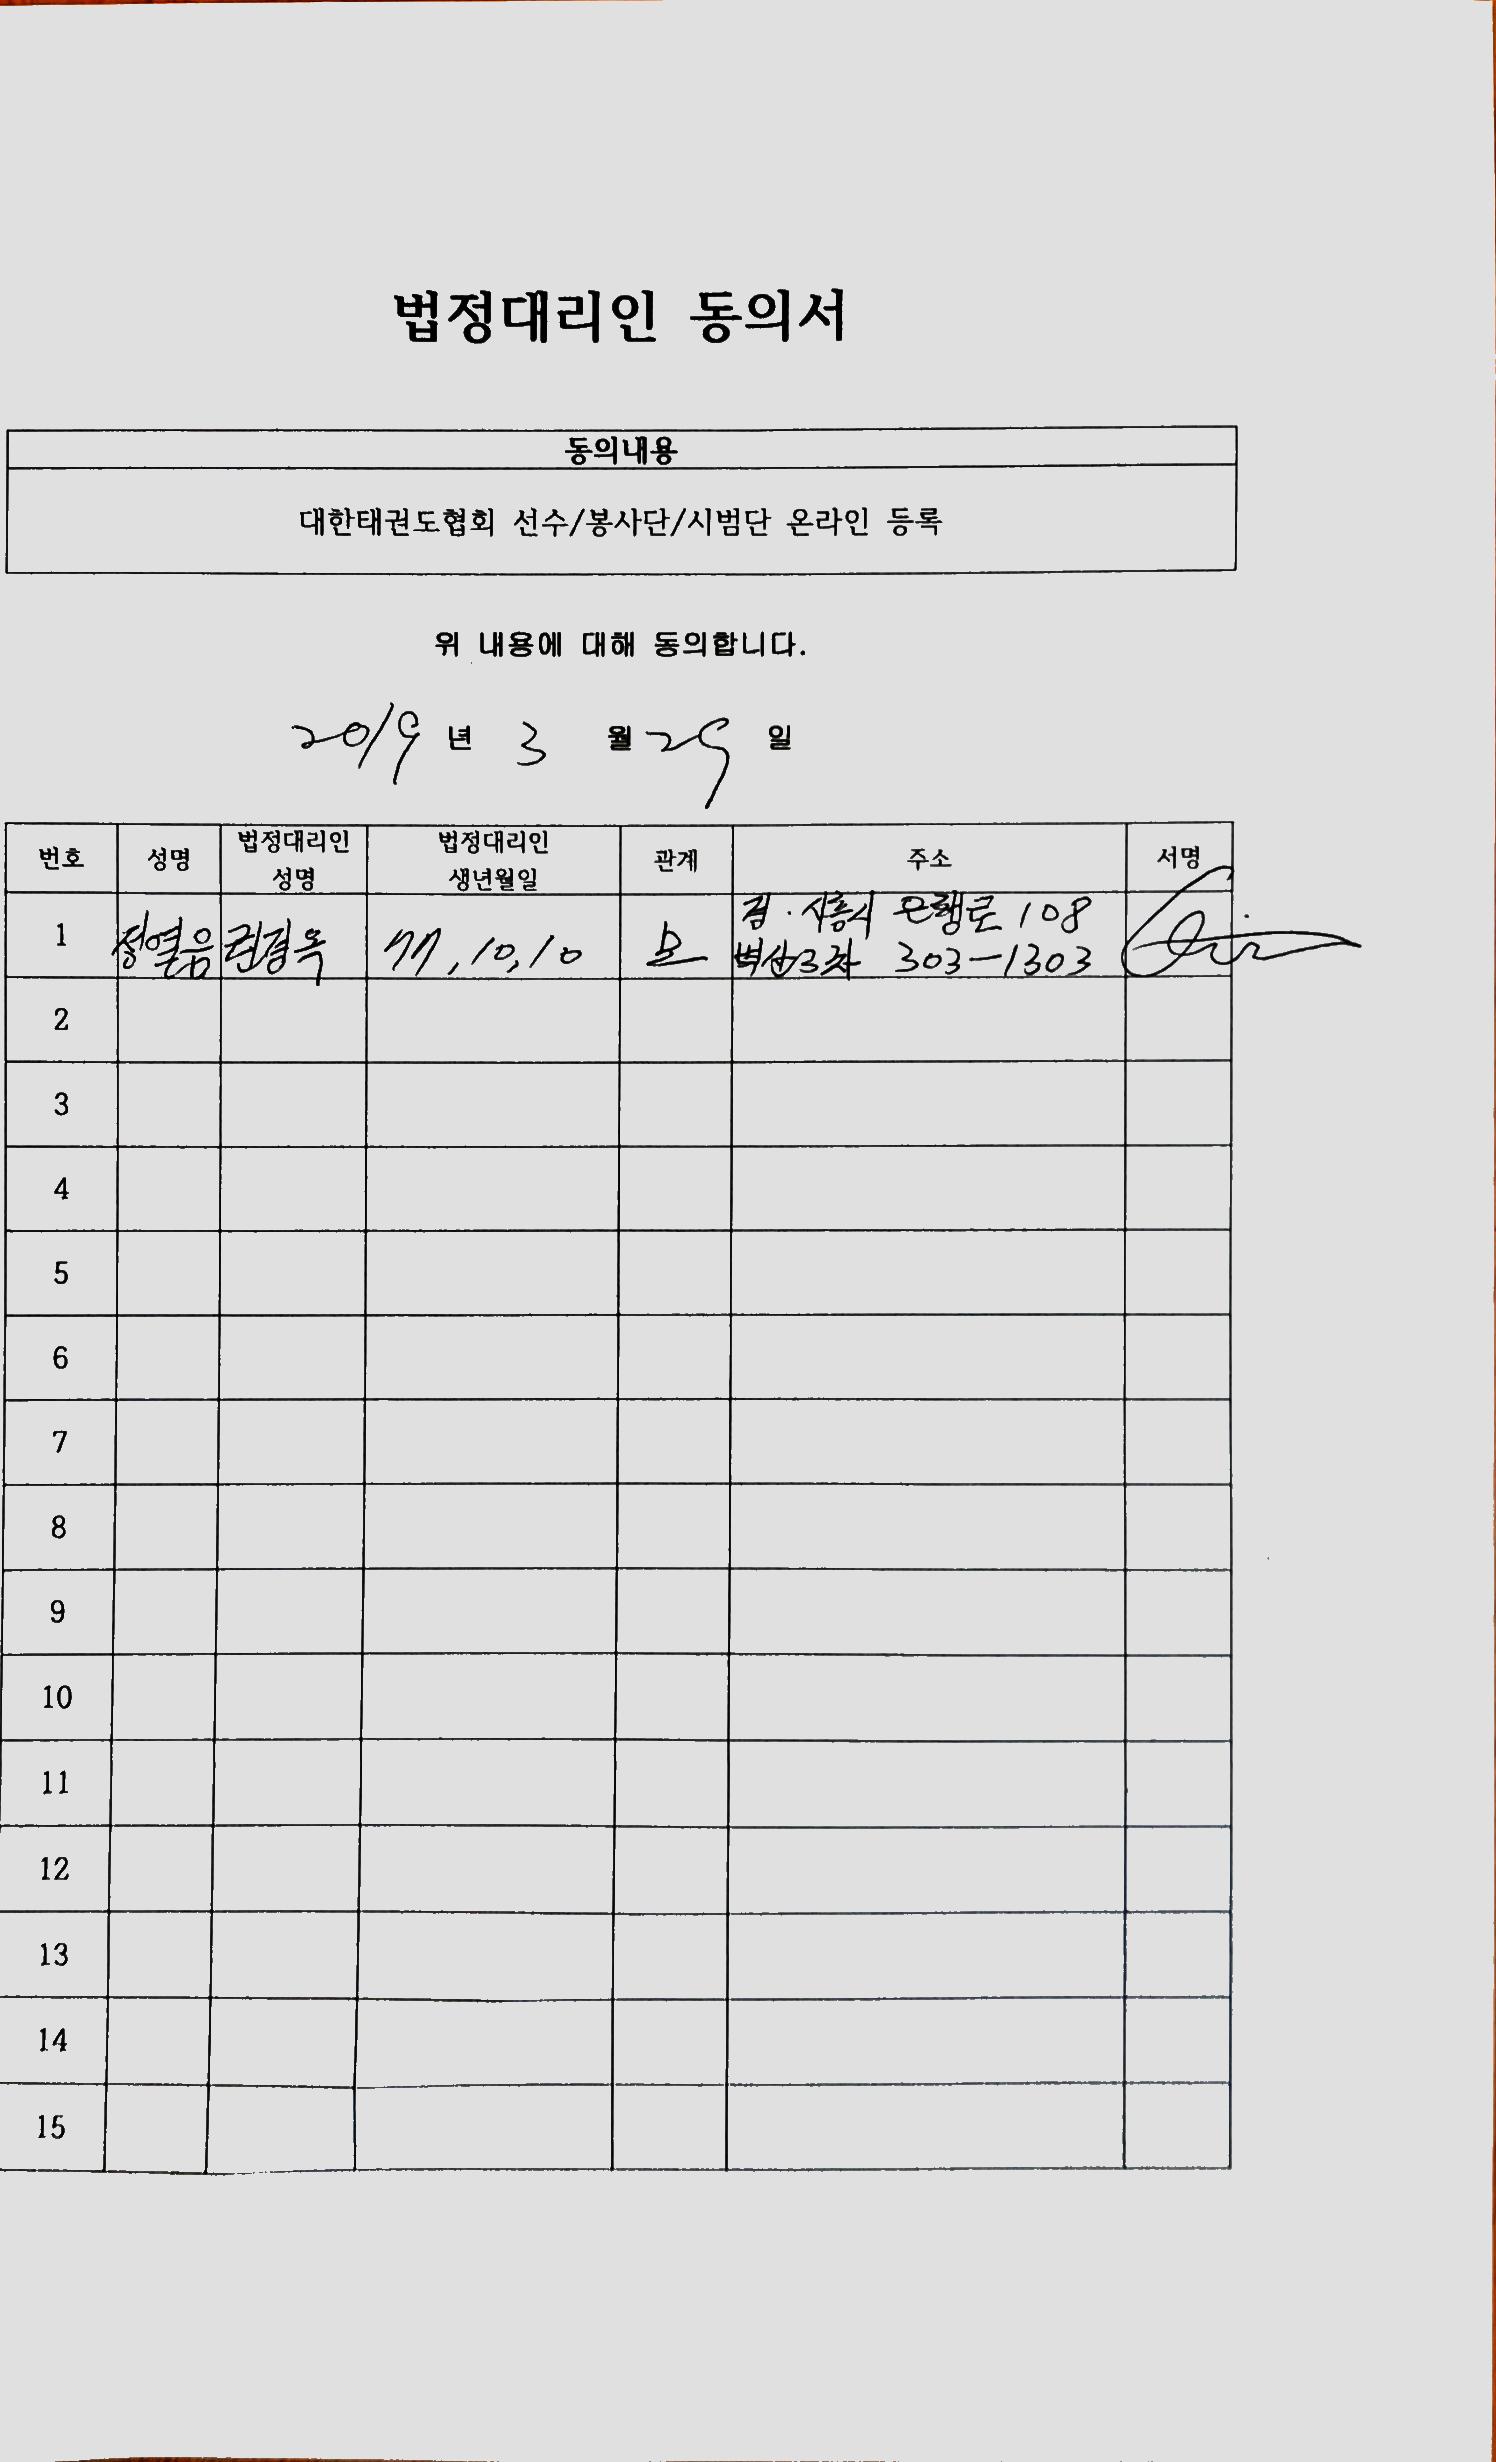 법정대리인 동의서
동의내용
대한태권도협회 선수/봉사단/시범단 온라인 등록
위 내용에 대해 동의합니다.
2019 년 3 월 29 일
번호 성명 법정대리인 성명 법정대리인 생년월일 관계 주소 서명
1 정열음 권경옥 77, 10, 10 모 경. 시흥시 은행로 108
벽산3차 303-1303
2
3
4
5
6
7
8
9
10
11
12
13
14
15